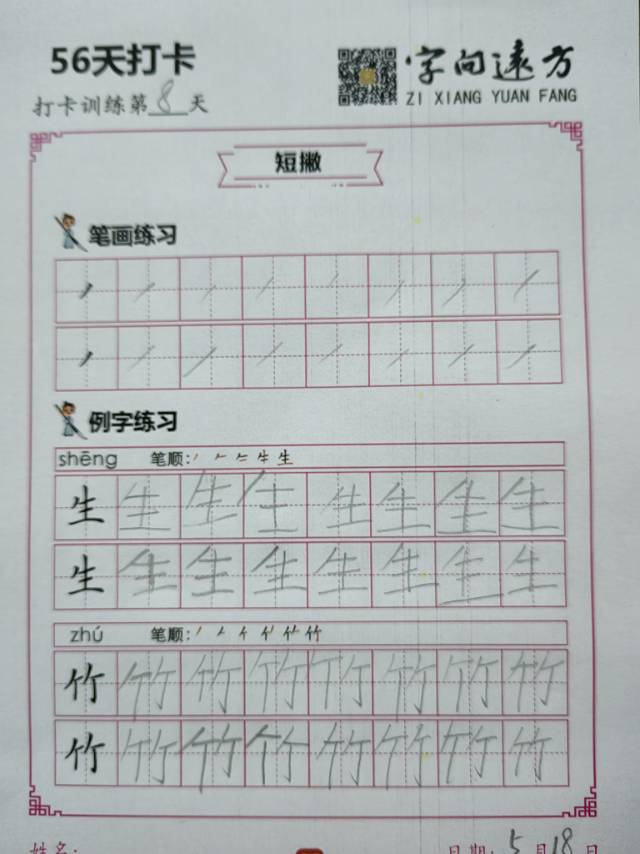 56天打卡
字向远方
ZI XIANG YUAN FANG
打卡训练第8天
短撇
笔画练习
例字练习
shēng 笔顺:
生 生 生 生 生 生 生 生
生 生 生 生 生 生 生 生
zhú 笔顺:
竹 竹 竹 竹 竹 竹 竹 竹
竹 竹 竹 竹 竹 竹 竹 竹
姓名: 日期: 5月18日